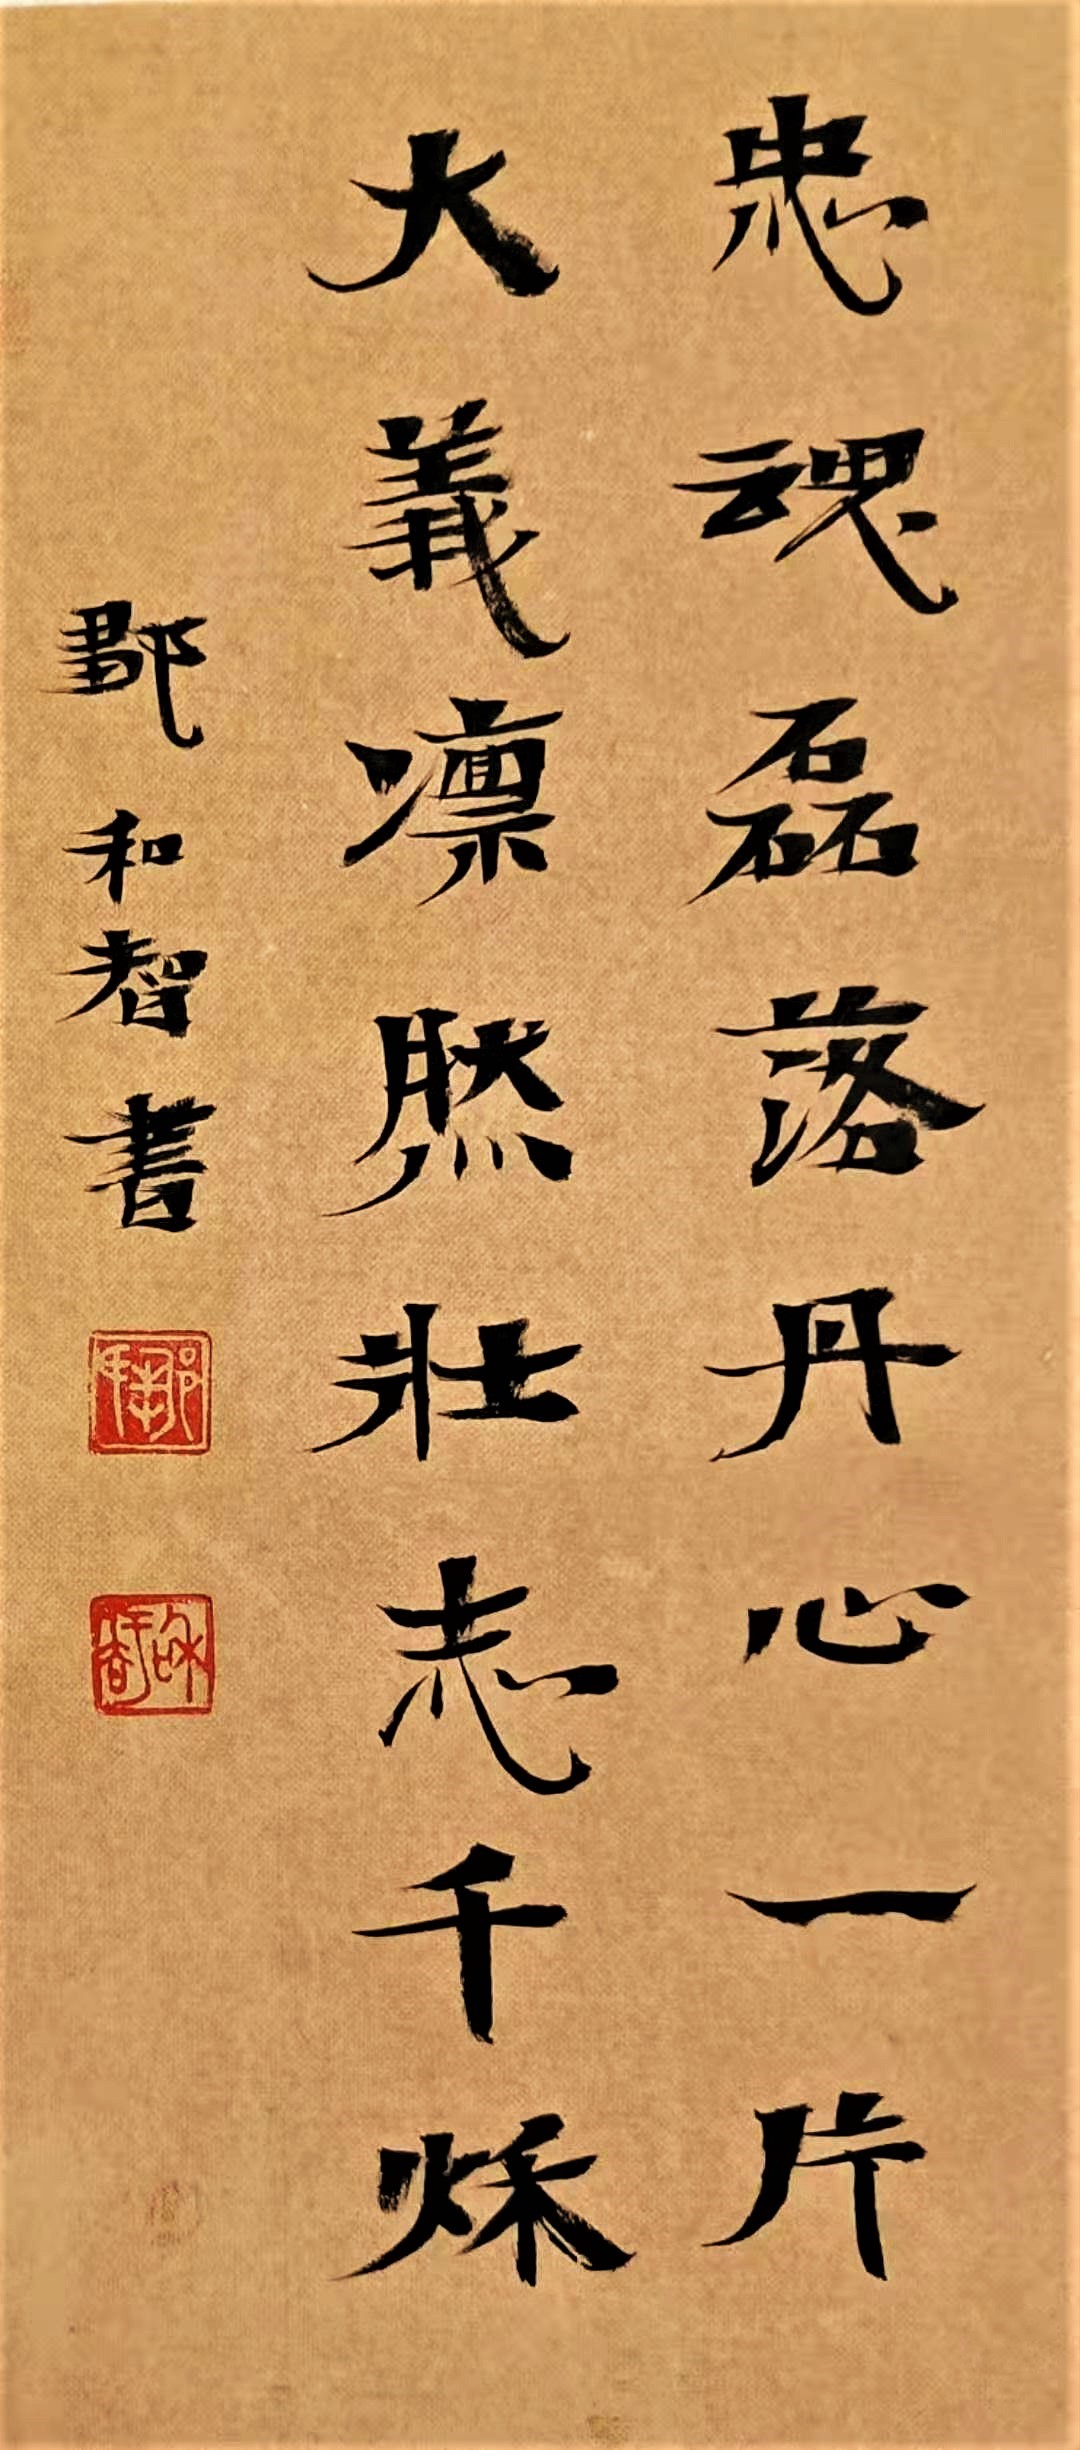 忠魂磊落丹心一片
大義凛然壯志千秌
和智書
和智